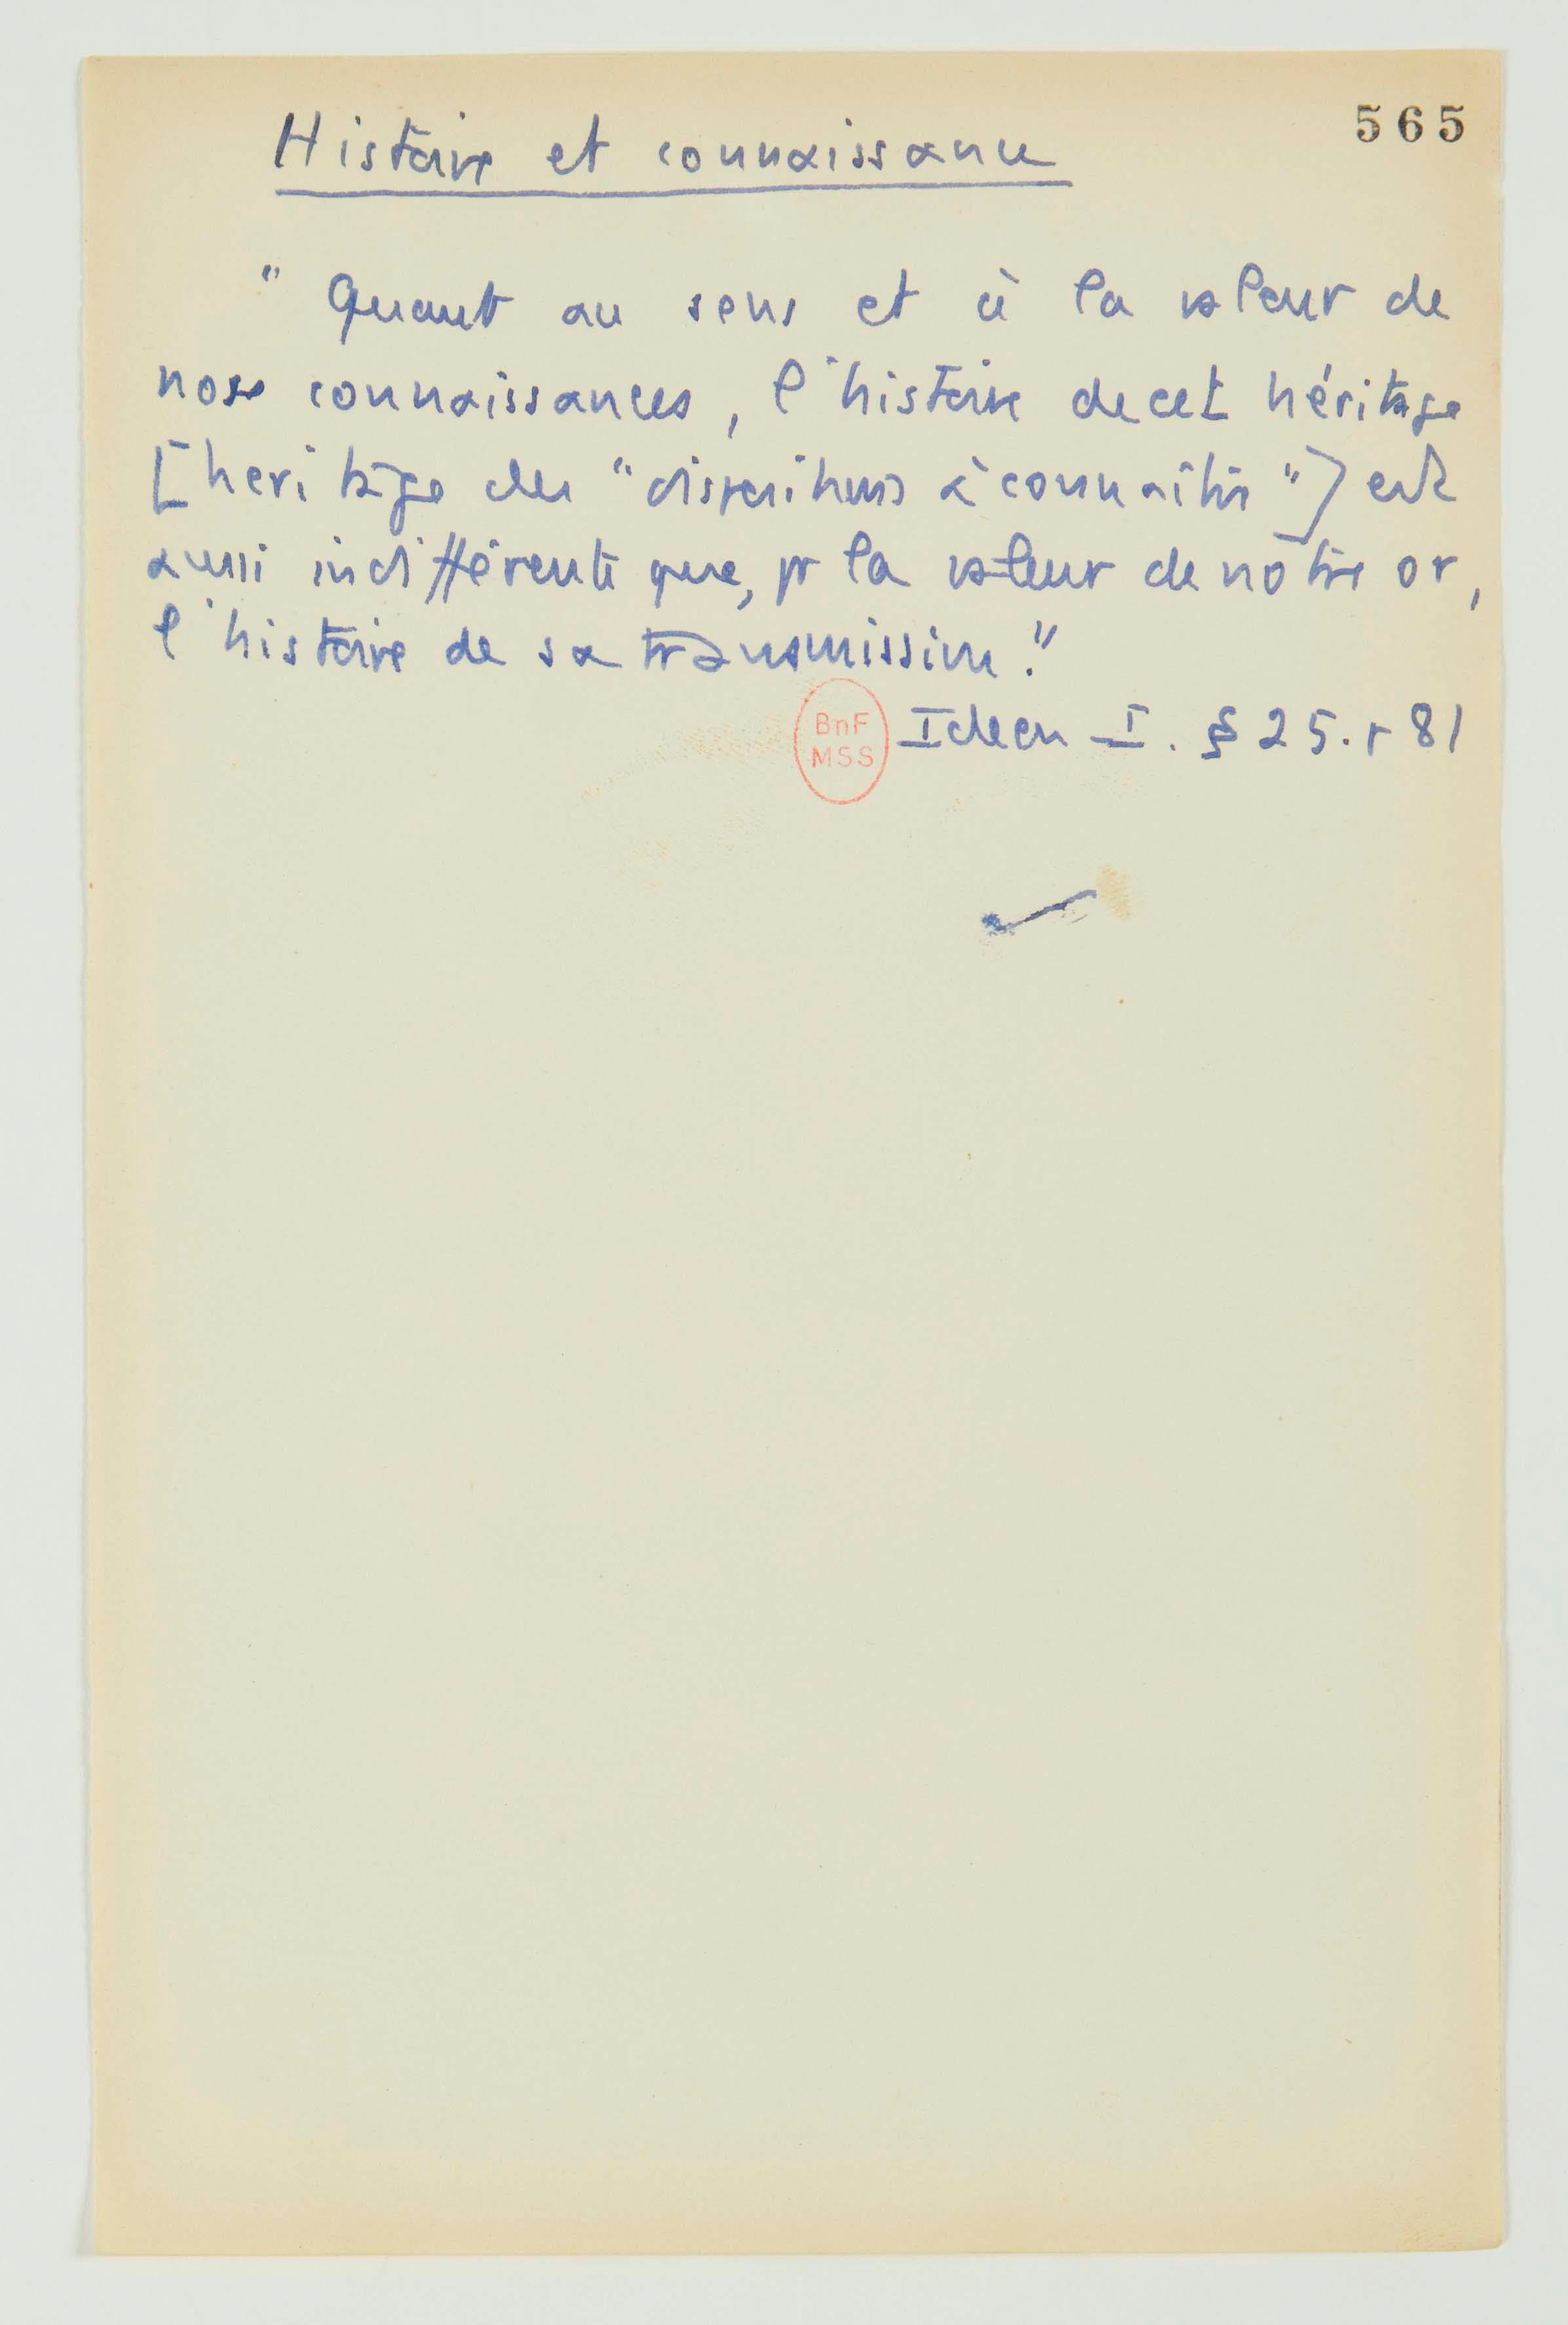 565
Histoire et connaissance
" Quant au sens et à la valeur de
nos connaissances, l'histoire de cet héritage
[heritage des "dispositions à connaître"] est
aussi indifférente que, pr la valeur de nôtre or,
l'histoire de sa transmission."
BnF
MSS
Ideen I. § 25. p 81